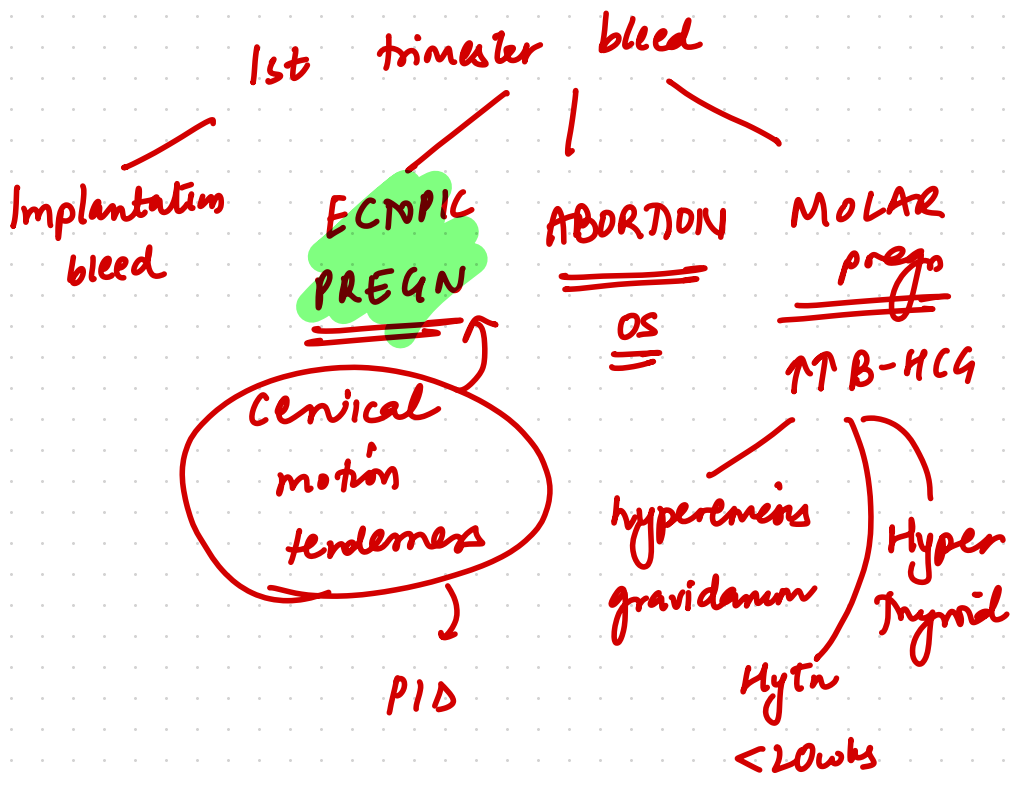 1st trimester bleed
Implantation
bleed
ECTOPIC
PREGN
ABORTION
OS
MOLAR
pregn
↑↑ B-HCG
Cervical
motion
tenderness
PID
hyperemesis
gravidarum
HyTn
<20wks
Hyper
Thyroid